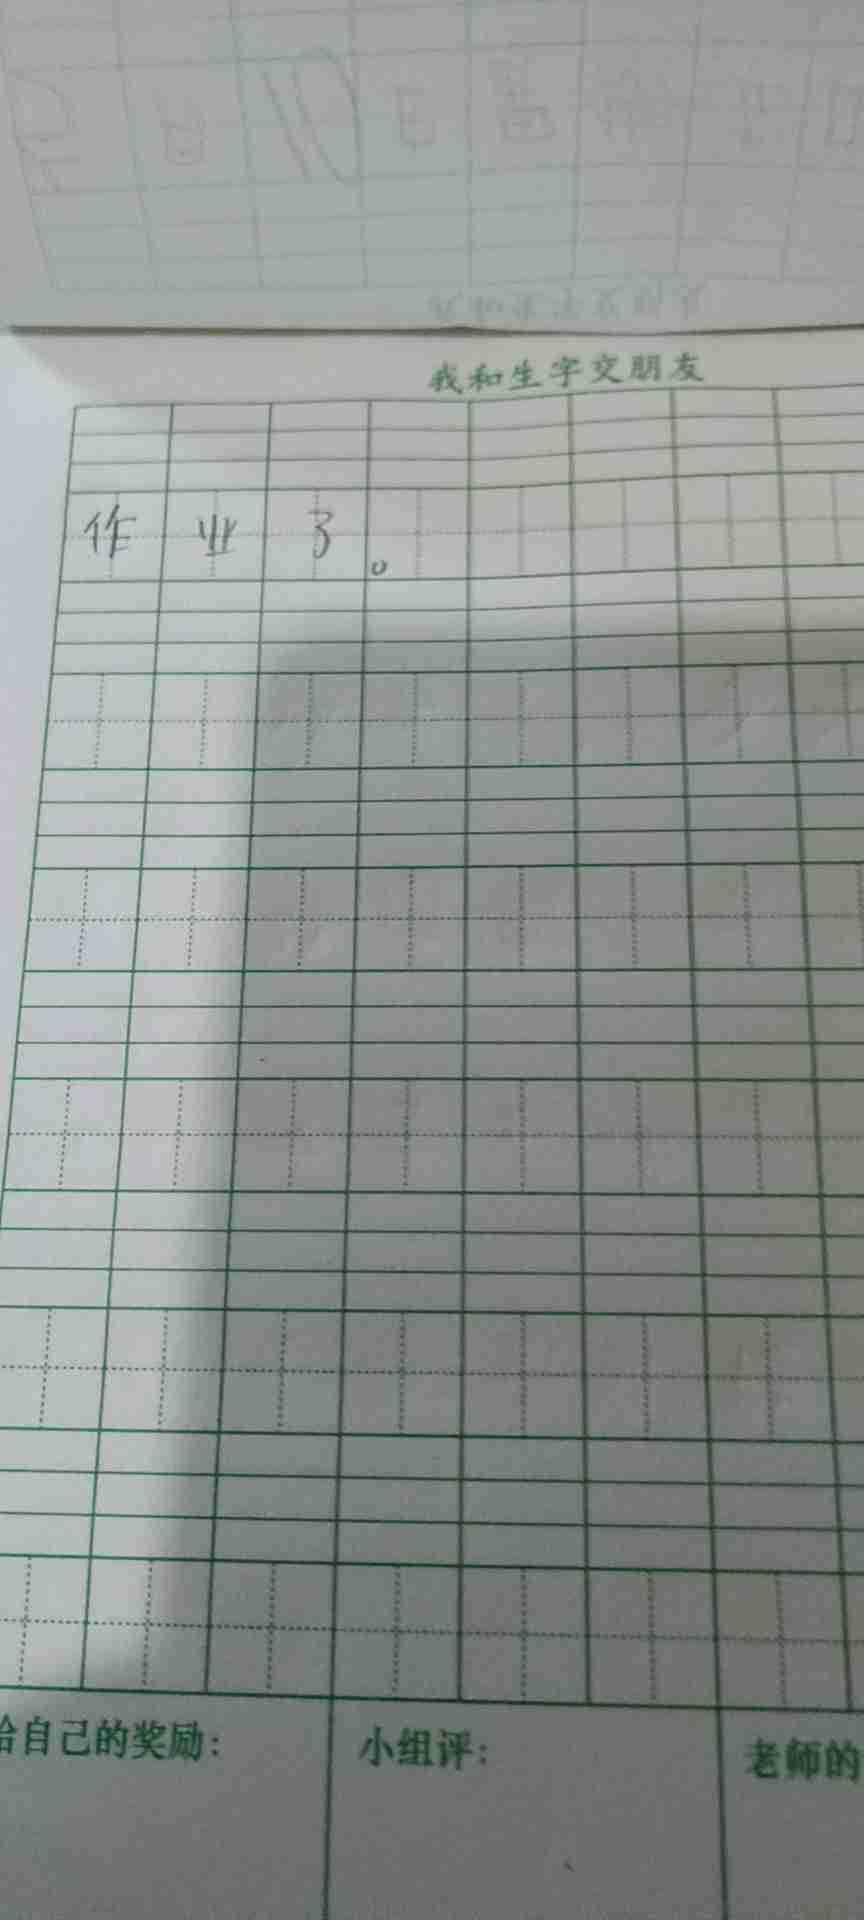 我和生字交朋友
作业了。
给自己的奖励：
小组评：
老师的